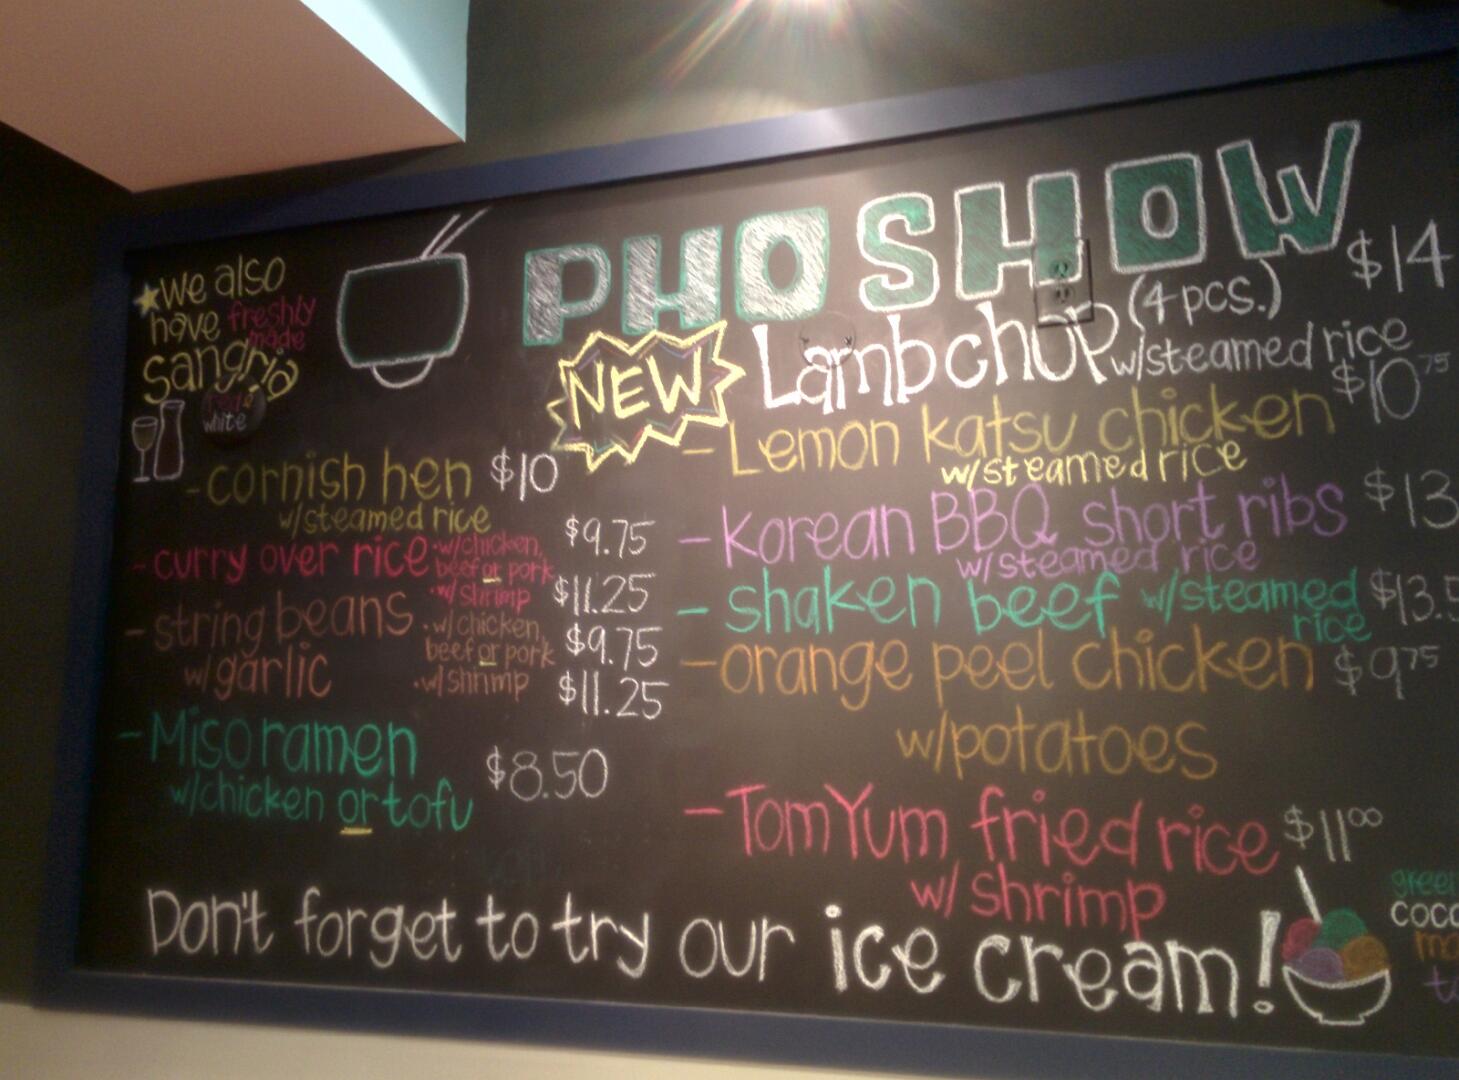 PHO SHOW
we also
have freshly
made
sangria
red &
white
- cornish hen $10
w/steamed rice
- curry over rice · w/chicken, $9.75
beef or pork
· w/ shrimp $11.25
- string beans · w/chicken,
w/garlic beef or pork $9.75
· w/shrimp $11.25
- Miso ramen $8.50
w/chicken or tofu
NEW Lamb chop (4 pcs.) $14
w/steamed rice
- Lemon katsu chicken $10 75
w/steamed rice
- Korean BBQ short ribs $13
w/steamed rice
- shaken beef w/steamed $13.5
rice
- orange peel chicken $9 75
w/potatoes
- Tom Yum fried rice $11 00
w/ shrimp
Don't forget to try our ice cream!